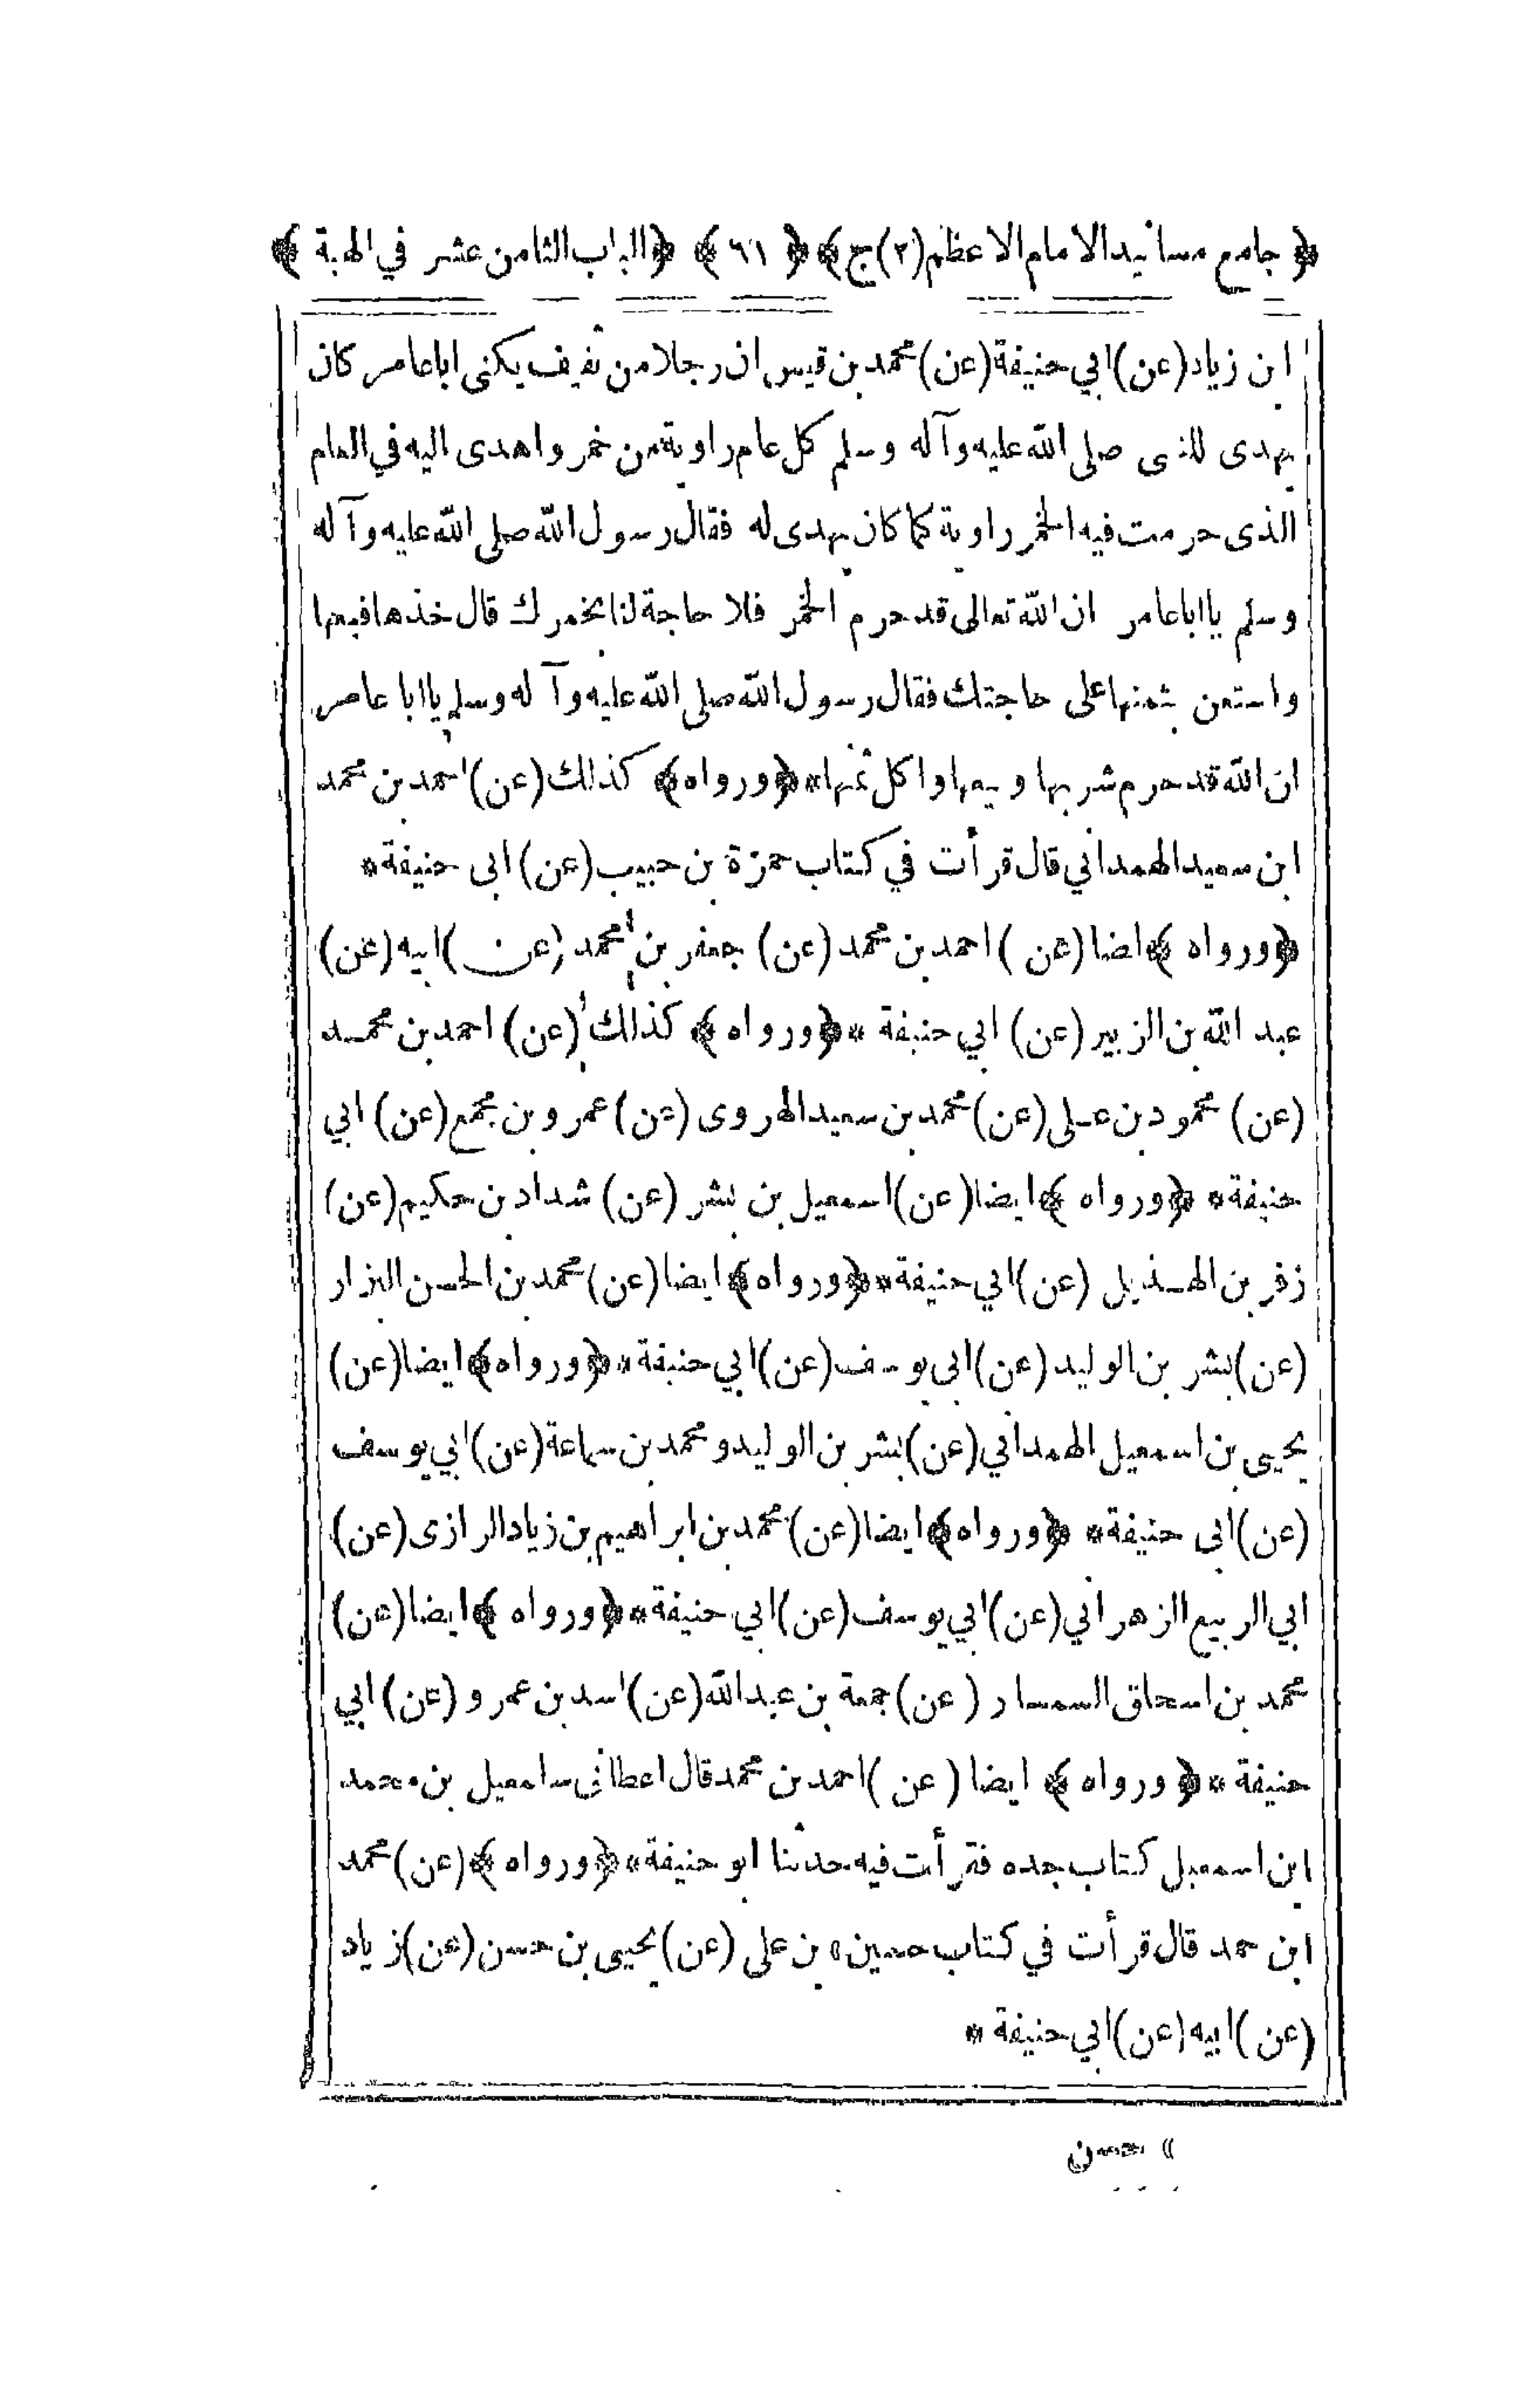 ﴿ جامع مسانيد الامام الاعظم (٢) ج ﴾ ﴿ ٦١ ﴾ ﴿ الباب الثامن عشر في الهبة ﴾
ابن زياد (عن) ابي حنيفة (عن) محمد بن قيس ان رجلا من ثقيف يكنى ابا عامر كان
يهدى للنبى صلى الله عليه وآله وسلم كل عام راوية من خمر واهدى اليه في العام
الذى حرمت فيه الخمر راوية كما كان يهدى له فقال رسول الله صلى الله عليه وآله
وسلم يا ابا عامر ان الله تعالى قد حرم الخمر فلا حاجة لنا بخمرك قال خذها فبعها
واستعن بثمنها على حاجتك فقال رسول الله صلى الله عليه وآله وسلم يا ابا عامر
ان الله قد حرم شربها وبيعها واكل ثمنها * ﴿ ورواه ﴾ كذلك (عن) احمد بن محمد
ابن سعيد الهمداني قال قرأت في كتاب حمزة بن حبيب (عن) ابى حنيفة *
﴿ ورواه ﴾ ايضا (عن) احمد بن محمد (عن) جعفر بن محمد (عن) ابيه (عن)
عبد الله بن الزبير (عن) ابي حنيفة * ﴿ ورواه ﴾ كذلك (عن) احمد بن محمد
(عن) محمود بن على (عن) محمد بن سعيد الهروى (عن) عمرو بن مجمع (عن) ابي
حنيفة * ﴿ ورواه ﴾ ايضا (عن) اسمعيل بن بشر (عن) شداد بن حكيم (عن)
زفر بن الهذيل (عن) ابي حنيفة * ﴿ ورواه ﴾ ايضا (عن) محمد بن الحسن البزار
(عن) بشر بن الوليد (عن) ابى يوسف (عن) ابي حنيفة * ﴿ ورواه ﴾ ايضا (عن)
يحيى بن اسمعيل الهمداني (عن) بشر بن الوليد ومحمد بن سماعة (عن) ابي يوسف
(عن) ابى حنيفة * ﴿ ورواه ﴾ ايضا (عن) محمد بن ابراهيم بن زياد الرازى (عن)
ابي الربيع الزهراني (عن) ابي يوسف (عن) ابي حنيفة * ﴿ ورواه ﴾ ايضا (عن)
محمد بن اسحاق السمسار (عن) جمعة بن عبد الله (عن) اسد بن عمرو (عن) ابي
حنيفة * ﴿ ورواه ﴾ ايضا (عن) احمد بن محمد قال اعطانى اسمعيل بن محمد
ابن اسمعيل كتاب جده فقرأت فيه حدثنا ابو حنيفة * ﴿ ورواه ﴾ (عن) محمد
ابن حمد قال قرأت في كتاب حسين بن على (عن) يحيى بن حسن (عن) زياد
(عن) ابيه (عن) ابي حنيفة *
« حسن